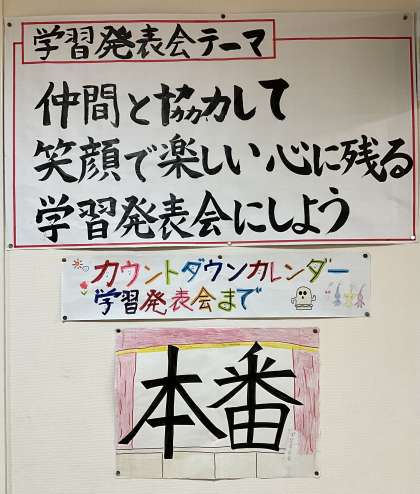 学習発表会テーマ
仲間と協力して
笑顔で楽しい心に残る
学習発表会にしよう
カウントダウンカレンダー
学習発表会まで
本番